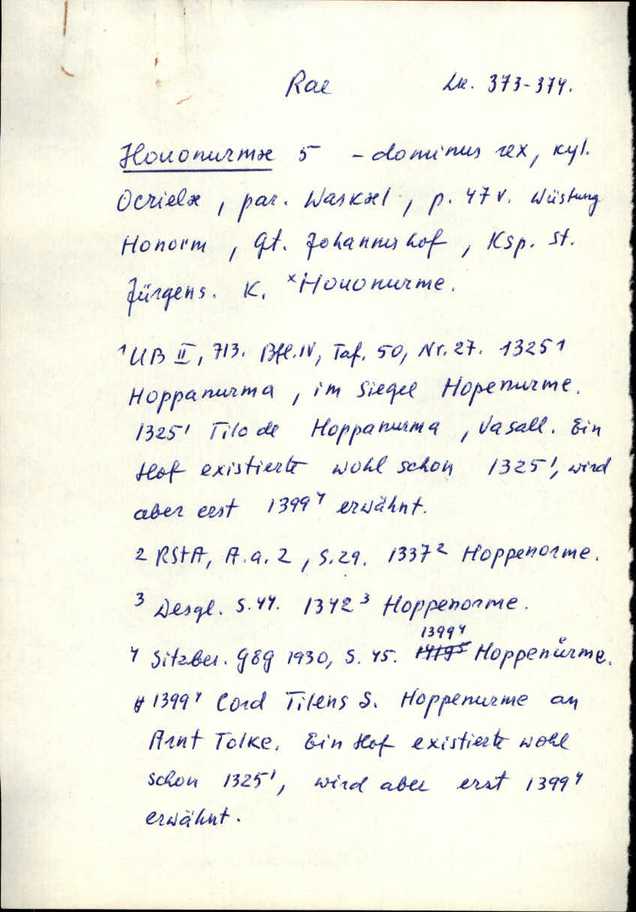 Rae Lk. 373-374.
Houonurmæ 5 - dominus rex, kyl.
Ocrielæ, par. Waskæl, p. 47v. Wüstung
Honorm, Gt. Johannishof, Ksp. St.
Jürgens. K. ×Hououurme.
¹UB II, 713. Bfl. IV, Taf. 50, Nr. 27. 1325¹
Hoppanurma, im Siegel Hopenurme.
1325¹ Tilo de Hoppanurma, Vasall. Ein
Hof existierte wohl schon 1325¹, wird
aber erst 1399⁴ erwähnt.
2 RStA, A.a. 2, S. 29. 1337² Hoppenorme.
³ Desgl. S. 44. 1342³ Hoppenorme.
1399⁴
⁴ Sitzber. GEG 1930, S. 45. Hoppenürme.
1399⁴ Cord Tilens S. Hoppenurme an
Arnt Tolke. Ein Hof existierte wohl
schon 1325¹, wird aber erst 1399⁴
erwähnt.